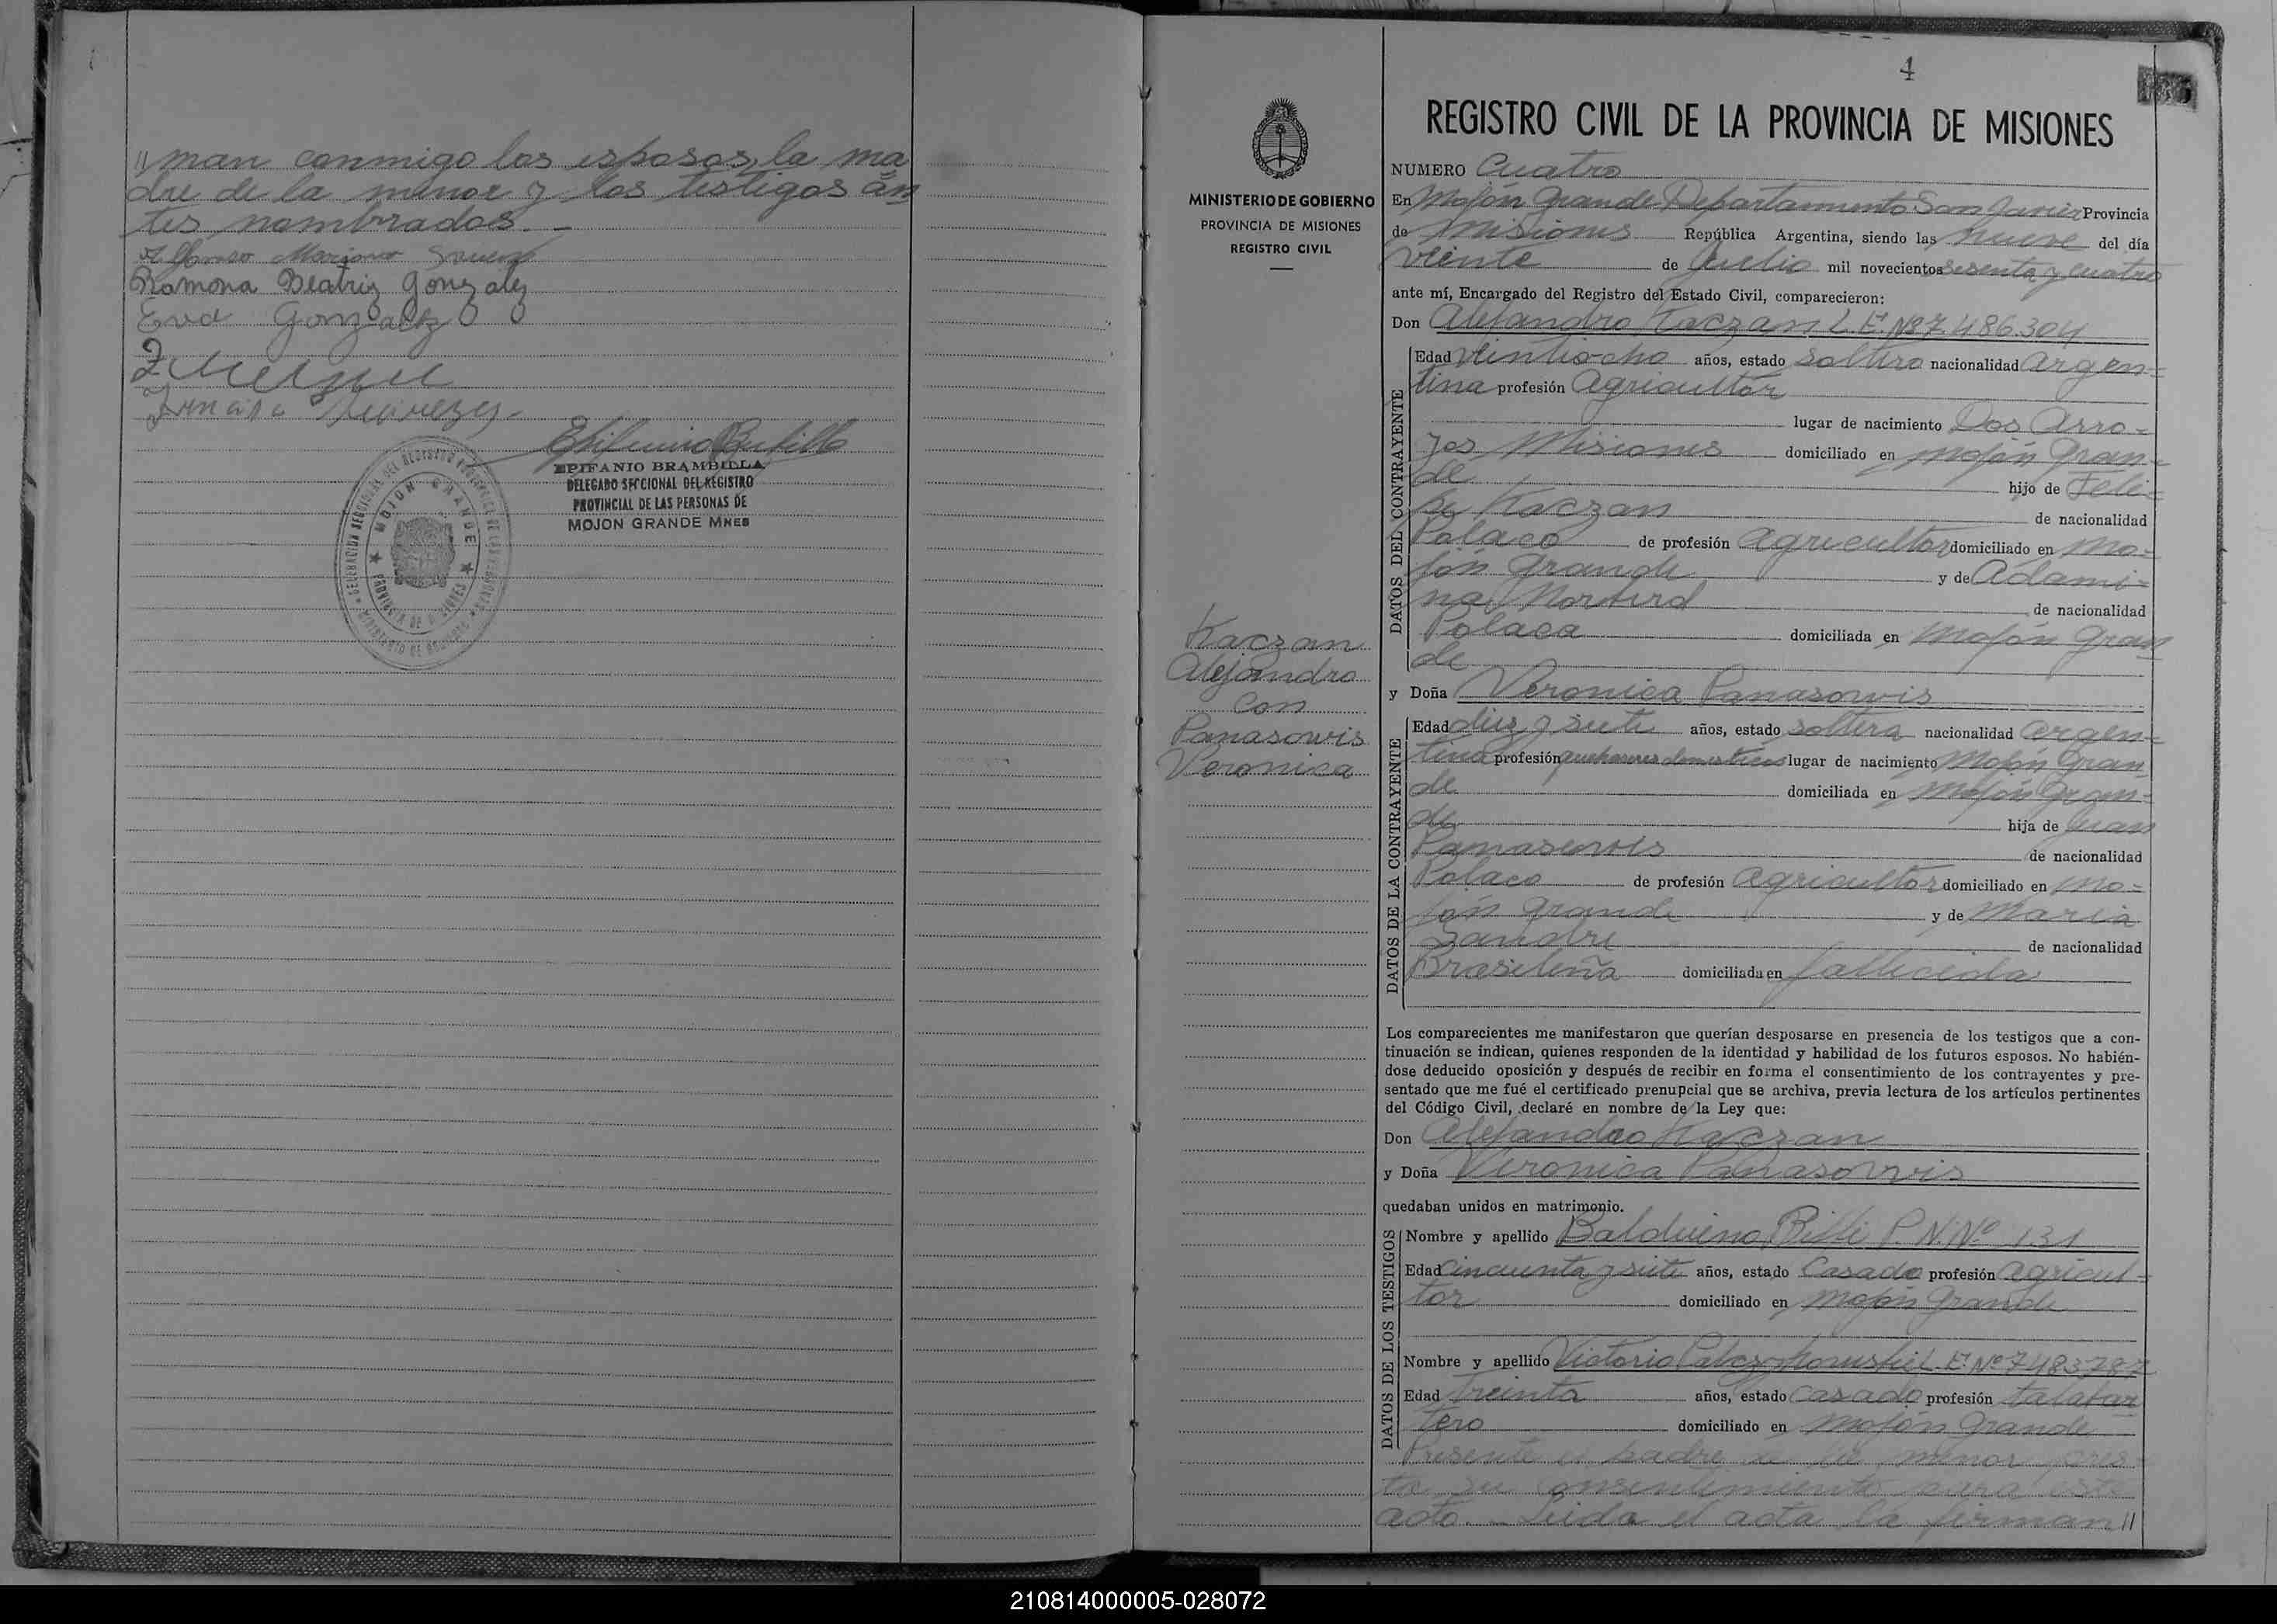 // man conmigo los esposos, la ma
dre de la menor y los testigos an
tes nombrados. –
Alfonso Mariano
Ramona Beatriz Gonzalez
Eva Gonzalez
Epifanio
EPIFANIO BRAMBILLA
DELEGADO SECCIONAL DEL REGISTRO
PROVINCIAL DE LAS PERSONAS DE
MOJON GRANDE MNES
MOJON GRANDE
PROVINCIA DE MISIONES
4
REGISTRO CIVIL DE LA PROVINCIA DE MISIONES
MINISTERIO DE GOBIERNO
PROVINCIA DE MISIONES
REGISTRO CIVIL
Kaczan
Alejandro
Con
Panasowis
Veronica
NUMERO Cuatro
En Mojón Grande Departamento San Javier Provincia
de Misiones República Argentina, siendo las nueve del día
veinte de Julio mil novecientos sesenta y cuatro
ante mí, Encargado del Registro del Estado Civil, comparecieron:
Don Alejandro Kaczan L.E. Nº 7.486.304
DATOS DEL CONTRAYENTE
Edad veintiocho años, estado soltero nacionalidad argen=
tina profesión agricultor
lugar de nacimiento Dos Arro=
yos Misiones domiciliado en Mojón Gran=
de hijo de Feli=
pe Kaczan de nacionalidad
Polaco de profesión agricultor domiciliado en Mo=
jón Grande y de Adami=
na de nacionalidad
Polaca domiciliada en Mojón Gran
de
y Doña Veronica Panasowis
DATOS DE LA CONTRAYENTE
Edad diez y siete años, estado soltera nacionalidad argen=
tina profesión quehaceres domesticos lugar de nacimiento Mojón Gran
de domiciliada en Mojón Gran=
de hija de Juan
Panasowis de nacionalidad
Polaco de profesión agricultor domiciliado en Mo=
jón Grande y de Maria
de nacionalidad
Brasileña domiciliada en fallecida
Los comparecientes me manifestaron que querían desposarse en presencia de los testigos que a con-
tinuación se indican, quienes responden de la identidad y habilidad de los futuros esposos. No habién-
dose deducido oposición y después de recibir en forma el consentimiento de los contrayentes y pre-
sentado que me fué el certificado prenupcial que se archiva, previa lectura de los artículos pertinentes
del Código Civil, declaré en nombre de la Ley que:
Don Alejandro Kaczan
y Doña Veronica Panasowis
quedaban unidos en matrimonio.
DATOS DE LOS TESTIGOS
Nombre y apellido Balduino P.N.Nº 131
Edad cincuenta y siete años, estado Casado profesión agricul=
tor domiciliado en Mojón Grande
Nombre y apellido Victorio L.E. Nº 7483787
Edad treinta años, estado casado profesión talabar
tero domiciliado en Mojón Grande
Presente el padre de la menor pres
ta su consentimiento para este
acto. – Leida el acta la firman //
210814000005-028072